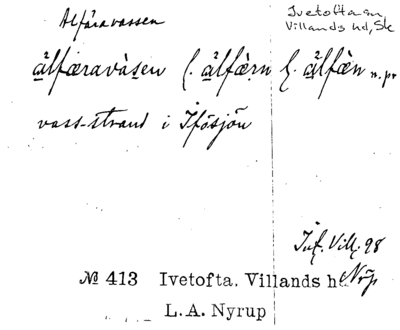 Alfäravassen
Ivetofta sn,
Villands hd, Sk
älfæravàsen (. älfæ̀rn l. älfæ̀n n. pr
vass-strand i Ifösjön
Inf. Vill. 98
№ 413 Ivetofta, Villands h
L. A. Nyrup